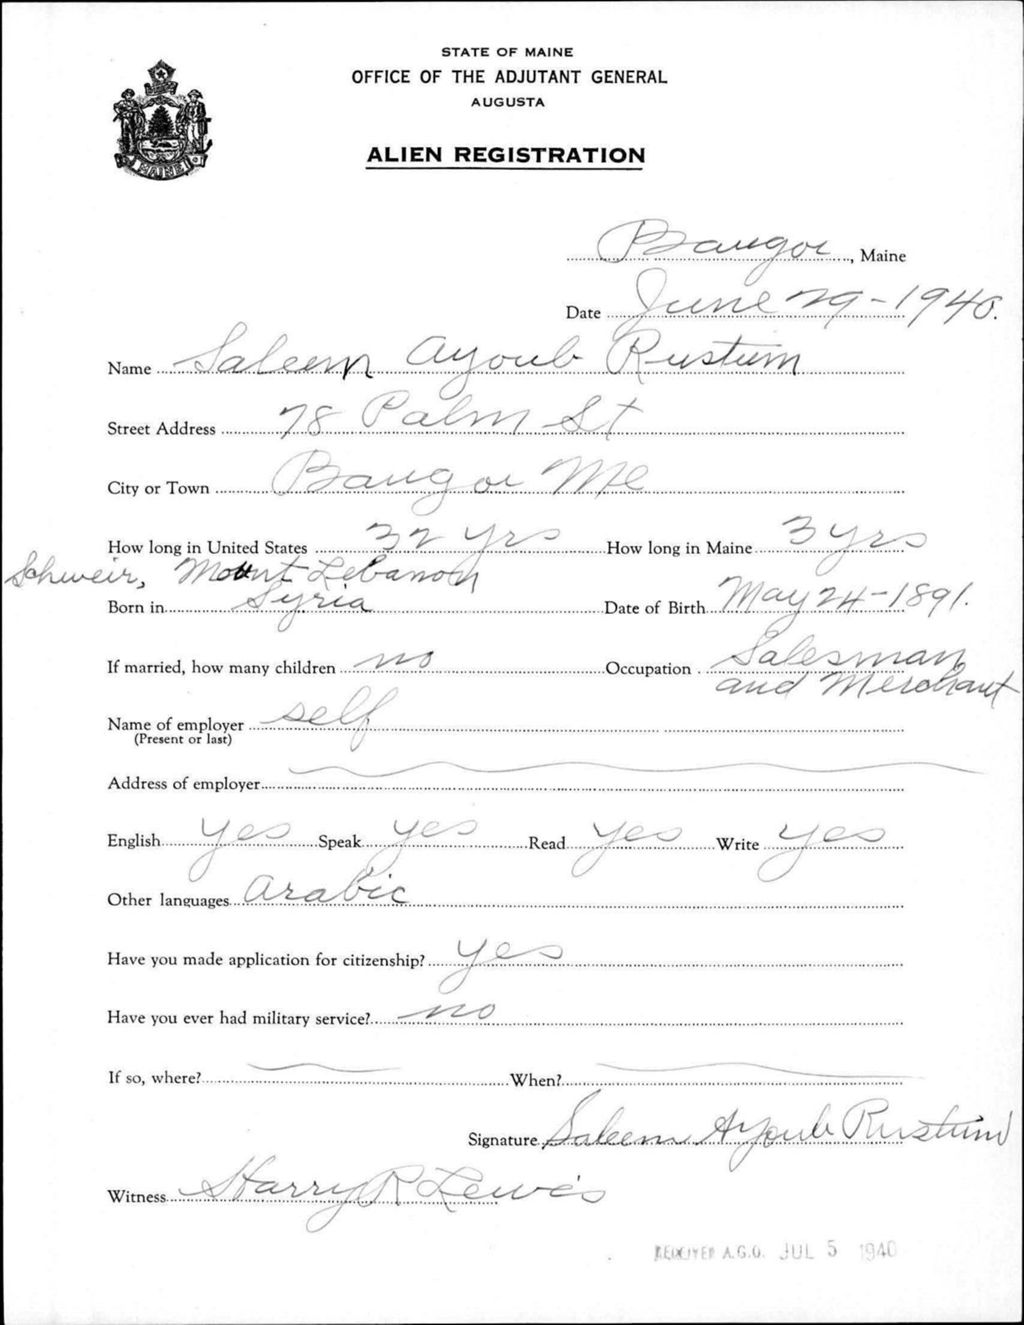 STATE OF MAINE
OFFICE OF THE ADJUTANT GENERAL
AUGUSTA
ALIEN REGISTRATION
MAINE
Bangor, Maine
Date June 29-1940.
Name Saleem Ayoub Rustum
Street Address 78 Palm St
City or Town Bangor Me
How long in United States 32 yrs How long in Maine 3 yrs
Schweir, Mount Lebanon
Born in Syria Date of Birth May 24-1891.
If married, how many children no Occupation Salesman
and Merchant
Name of employer self
(Present or last)
Address of employer
English yes Speak yes Read yes Write yes
Other languages Arabic
Have you made application for citizenship? yes
Have you ever had military service? no
If so, where? When?
Signature Saleem Ayoub Rustum
Witness Harry R Lewis
RECEIVED A.G.O. JUL 5 1940